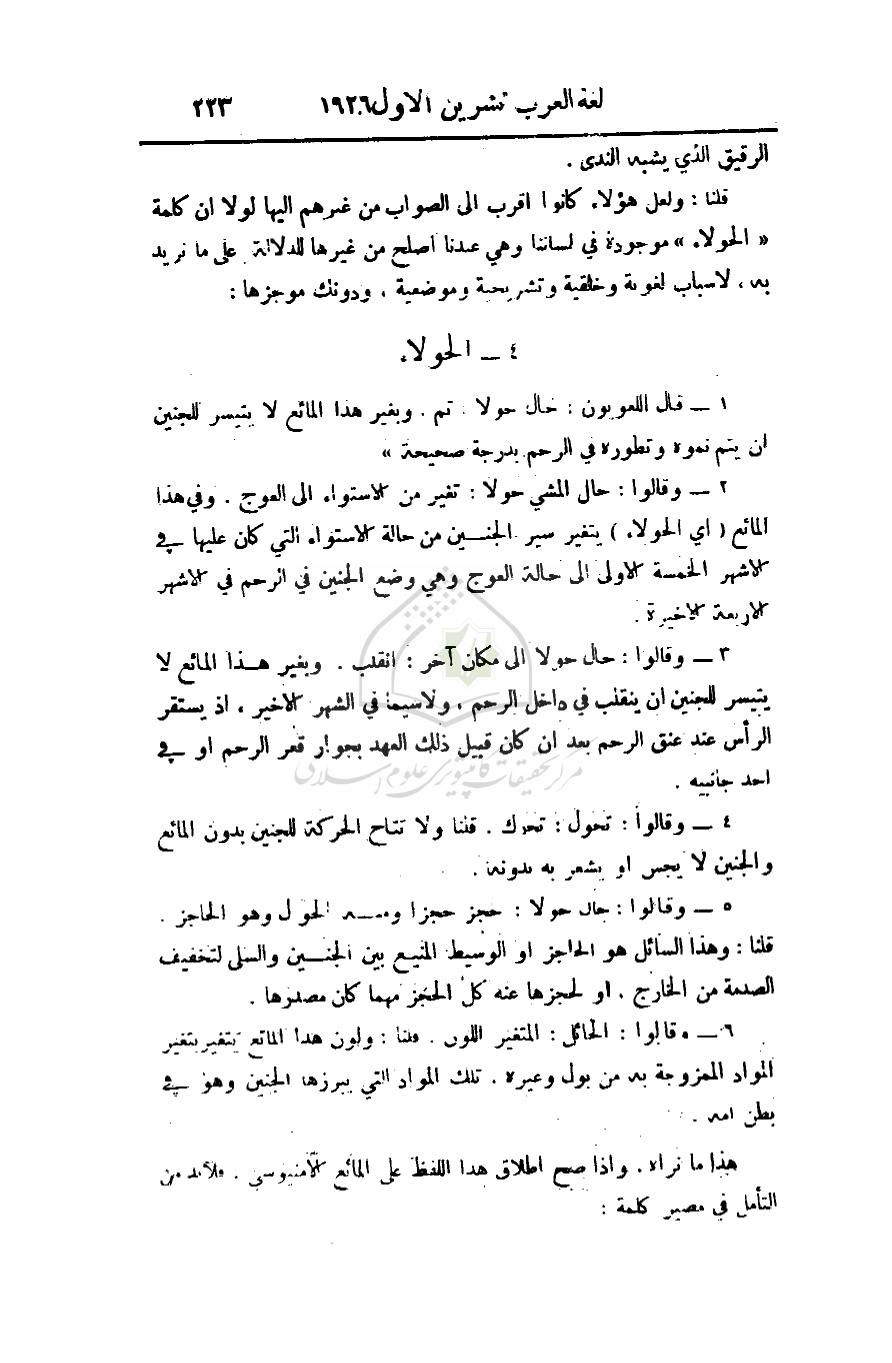 لغة العرب تشرين الاول ١٩٢٦ ٢٢٣
الرقيق الذي يشبه الندى .
قلنا : ولعل هؤلاء كانوا اقرب الى الصواب من غيرهم اليها لولا ان كلمة
« الحولاء » موجودة في لساننا وهي عندنا اصلح من غيرها للدلالة على ما نريد
به ، لاسباب لغوية وخلقية وتشريحية وموضعية . ودونك موجزها :
٤ ــ الحولاء
١ ــ قال اللغويون : حال حولا : تم . وبغير هذا المائع لا يتيسر للجنين
ان يتم نموه وتطوره في الرحم بدرجة صحيحة »
٢ ــ وقالوا : حال المشي حولا : تغير من الاستواء الى العوج . وفي هذا
المائع ( اي الحولاء ) يتغير سير الجنــين من حالة الاستواء التي كان عليها في
الاشهر الخمسة الاولى الى حالة العوج وهي وضع الجنين في الرحم في الاشهر
الاربعة الاخيرة .
٣ ــ وقالوا : حال حولا الى مكان آخر : انقلب . وبغير هــذا المائع لا
يتيسر للجنين ان ينقلب في داخل الرحم ، ولاسيما في الشهر الاخير ، اذ يستقر
الرأس عند عنق الرحم بعد ان كان قبيل ذلك العهد بجوار قعر الرحم او في
احد جانبيه .
مركز تحقيقات كامپيوترى علوم اسلامى
٤ ــ وقالوا : تحول : تحرك . قلنا ولا تتاح الحركة للجنين بدون المائع
والجنين لا يحس او يشعر به بدونه .
٥ ــ وقالوا : حال حولا : حجز حجزا ومنــه الحول وهو الحاجز .
قلنا : وهذا السائل هو الحاجز او الوسيط المنيع بين الجنــين والسلى لتخفيف
الصدمة من الخارج . او لحجزها عنه كل الحجز مهما كان مصدرها .
٦ ــ وقالوا : الحائل : المتغير اللون . قلنا : ولون هذا المائع يتغير بتغير
المواد الممزوجة به من بول وغيره . تلك المواد التي يبرزها الجنين وهو في
بطن امه .
هذا ما نراه . واذا صح اطلاق هذا اللفظ على المائع الأمنيوسي . فلابد من
التأمل في مصير كلمة :